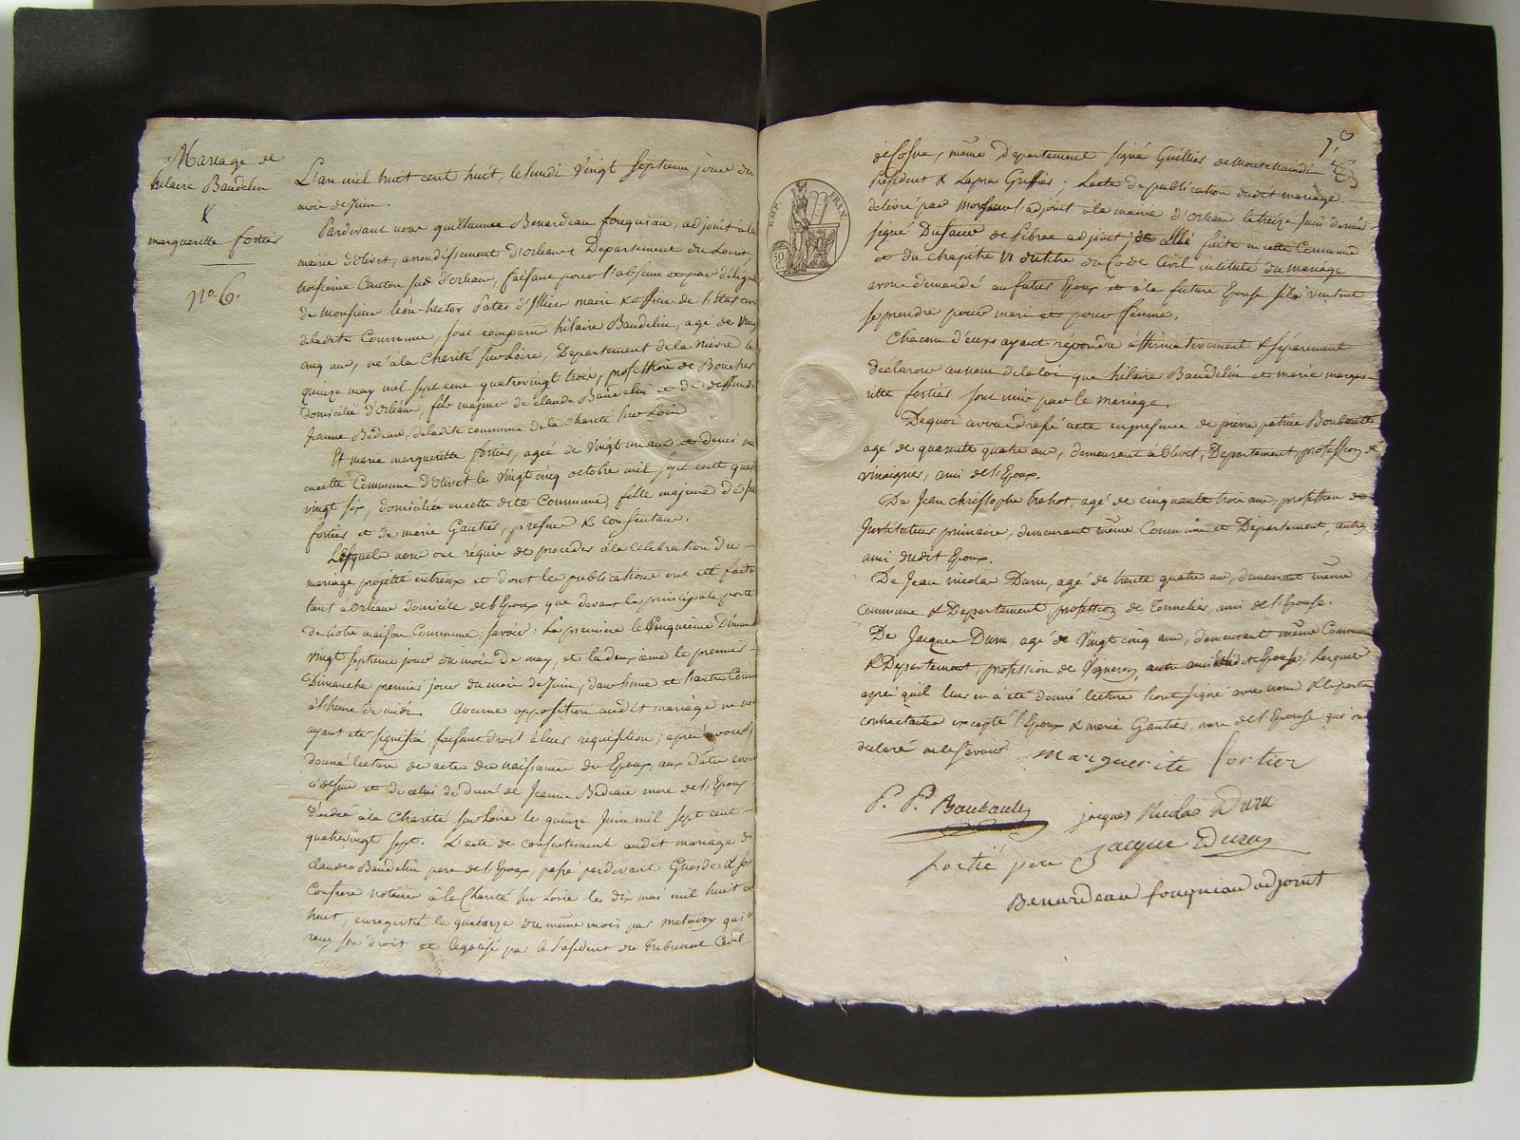 Mariage de
hilaire Baudelin
&
margueritte fortier
n.o 6.
L'an mil huit cent huit, le lundi vingt septieme jour du
mois de Juin.
Pardevant nous guillaume Benardeau fougniau, adjoint à la
mairie d'olivet, arrondissement d'orleans Departement du Loiret,
troisieme Canton sud d'orleans, faisant pour l'absence et par délég
de Monsieur léon-hector Patas d'Illiers maire & officier de l'état civil
de ladite Commune, sont comparu hilaire Baudelin, agé de vingt
cinq ans, né à la Charité sur Loire, Departement de la nievre le
quinze may mil sept cent quatrevingt trois, profession de Boucher
domicilié d'orléans, fils majeur de claude Baudelin et de deffunte
Jeanne Bedeau, de ladite commune de la charité sur Loire
Et marie marguerritte fortier, agée de vingt un ans et demi né
en cette Commune d'olivet le vingt cinq octobre mil sept cent quat
vingt six, domiciliée en cette dite Commune, fille majeure de
fortier et de marie Gautier, presens & consentans.
Lesquels nous ont requis de proceder à la celebration du
mariage projetté entreux et dont les publications ont eté faites
tant a orleans domicile de l'Epoux que devant la principale porte
de notre maison Commune, savoir: La premiere le Cinquieme Diman
vingt septieme jour du mois de may, et la deuxieme le premier
Dimanche premier jour du mois de Juin, d'an heure et l'autre
à l'heure de midi. Aucune opposition audit mariage ne nous
ayant eté signifiée faisant droit à leur requisition, aprés avoir
donné lecture des actes de naissance des Epoux, aux dates
et de celui de decés de Jeanne Bedeau mere de l'Epoux
décédée à la Charité sur Loire le quinze Juin mil sept cent
quatrevingt sept. L'acte de consentement audit mariage de
claude Baudelin pere de l'Epoux, passé pardevant & son
Confrere notaires à la Charité sur Loire le dix mai mil huit cent
huit, enregistré le quatorze du même mois par qui a
recu son droit et légalisé par le President du Tribunal Civil
de Cosne, même departement signé Guillier de
President & Lapra Greffier; Lacte de publication dudit mariage
délivré par Monsieur l'adjoint à la mairie d'orleans le treize Juin dernier
signé Dufaur de Pibrac adjoint; et celle faite en cette Commune
et du chapitre VI du titre du Code Civil intitulé du mariage
avons demandé au futur Epoux et à la future Epouse s'ils veulent
se prendre pour mari et pour femme.
Chacun d'eux ayant répondu affirmativement & séparément
déclarons au nom de la loi que hilaire Baudelin et marie margue
ritte fortier sont unis par le mariage.
Dequoi avons dressé acte en presence de pierre patrice Boubault
agé de quarente quatre ans, demeurant à Olivet, Departement, profession de
vinaigrier, ami de l'Epoux.
De Jean christophe trabot, agé de cinquante trois ans, profession de
Instituteur primaire, demeurant même Commune et Departement, autre
ami dudit Epoux.
De Jean nicolas Duru, agé de trente quatre ans, demeurant même
Commune & Departement profession de Tonnelier, ami de l'Epouse.
De Jacques Duru, agé de Vingt cinq ans, demeurant même Commune
& Departement, profession de Vigneron, autre ami de l'Epouse, Lesquels
aprés qu'il leur en a été donné lecture l'ont signé avec nous & les parties
contractantes excepté l'Epoux & marie Gautier, mere de l'Epouse qui ont
declaré ne le savoir
Marguerite fortier
P. P. Boubault
jacques Nicolas Duru
fortié pere
Jacque Duru
Benardeau fougniau adjoint
EMP.
FRAN.